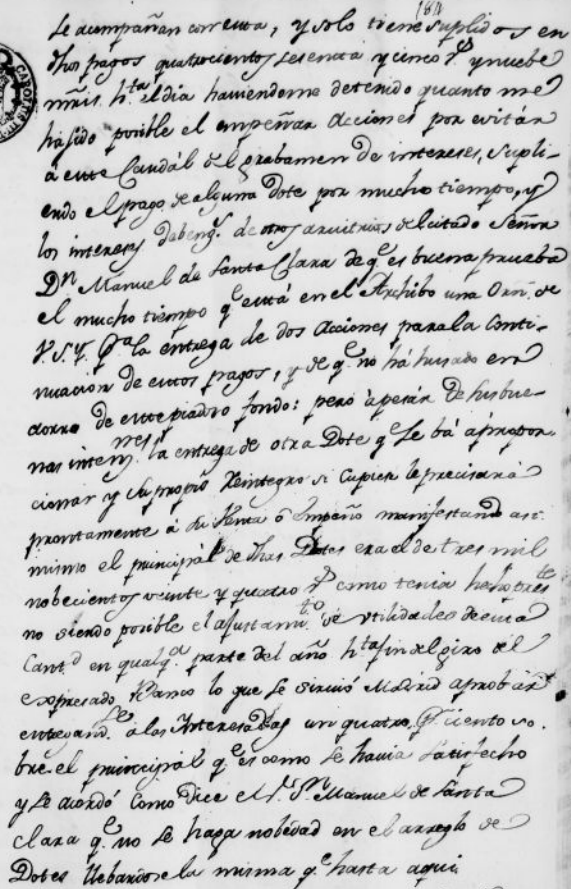 184
le acompañan con cuenta, y solo tiene suplidos en
dhos pagos quatrocientos sesenta y cinco rs. y nuebe
mrs. hta. el dia haviendome detenido quanto me
ha sido posible el empeñar Acciones por evitar
a este Caudál del grabamen de intereses, supli-
endo el pago de alguna Dote por mucho tiempo, y
los intereses debengs. de otros arvitrios el citado Señor
Dn Manuel de Santa Clara de qe. es buena prueba
el mucho tiempo qe está en el Archibo una Orn. de
V.S.Y. pa. la entrega de dos Acciones para la Conti-
nuacion de estos pagos, y de qe. no há husado en
aorro de este piadoso fondo: pero á pesar de sus bue-
nas intens. la entrega de otra Dote qe se bá á propor-
cionar y su propio Reintegro si cupiese le precisará
prontamente á su Venta ó empeño manifestando asi
mismo el principál de dhas Dotes era el de tres mil
nobecientos veinte y quatro rs. como tenia hecho preste.
no siendo posible el ajustamto. de utilidades de esta
Cantd. en qualqa. parte del año hta fin del giro del
expresado Banco lo que se sirvió Madrid aprobar
entregandse. a las Interesadas un quatro pr. ciento so-
bre el principal qe es como se havia satisfecho
y se acordó como Dice el Sr. Dn. Manuel de Santa
Clara qe. no se haga nobedad en el arreglo de
Dotes llebandose la misma qe. hasta aqui